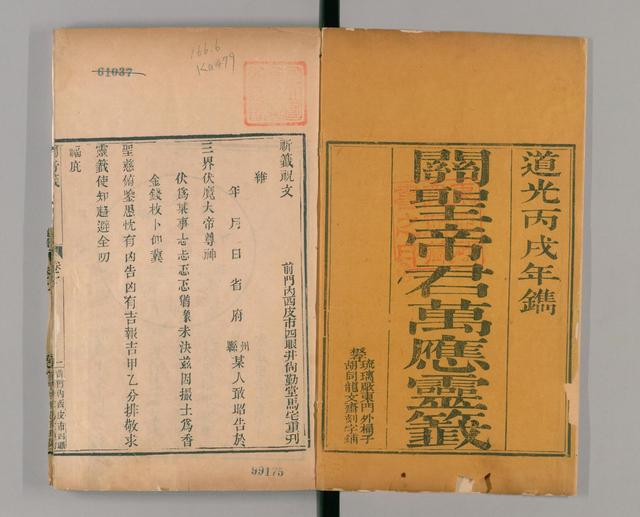 道光丙戌年鐫
關聖帝君萬應靈籤
琉璃廠東門外桶子
胡同龍文齋刻字鋪
61037
166.6
Ka479
祈籤祝文
前門內西皮市四眼井尚勤堂馬宅重刊
維
年 月 日省府州縣某人敢昭告於
三界伏魔大帝尊神
伏爲某事忐忐忑忑猶豫未決茲因撮土爲香
金錢枚卜仰冀
聖慈俯鑒愚忱有凶告凶有吉報吉甲乙分排敬求
靈籤使知趨避全叨
福庇
二
前門內西皮市四眼
99175